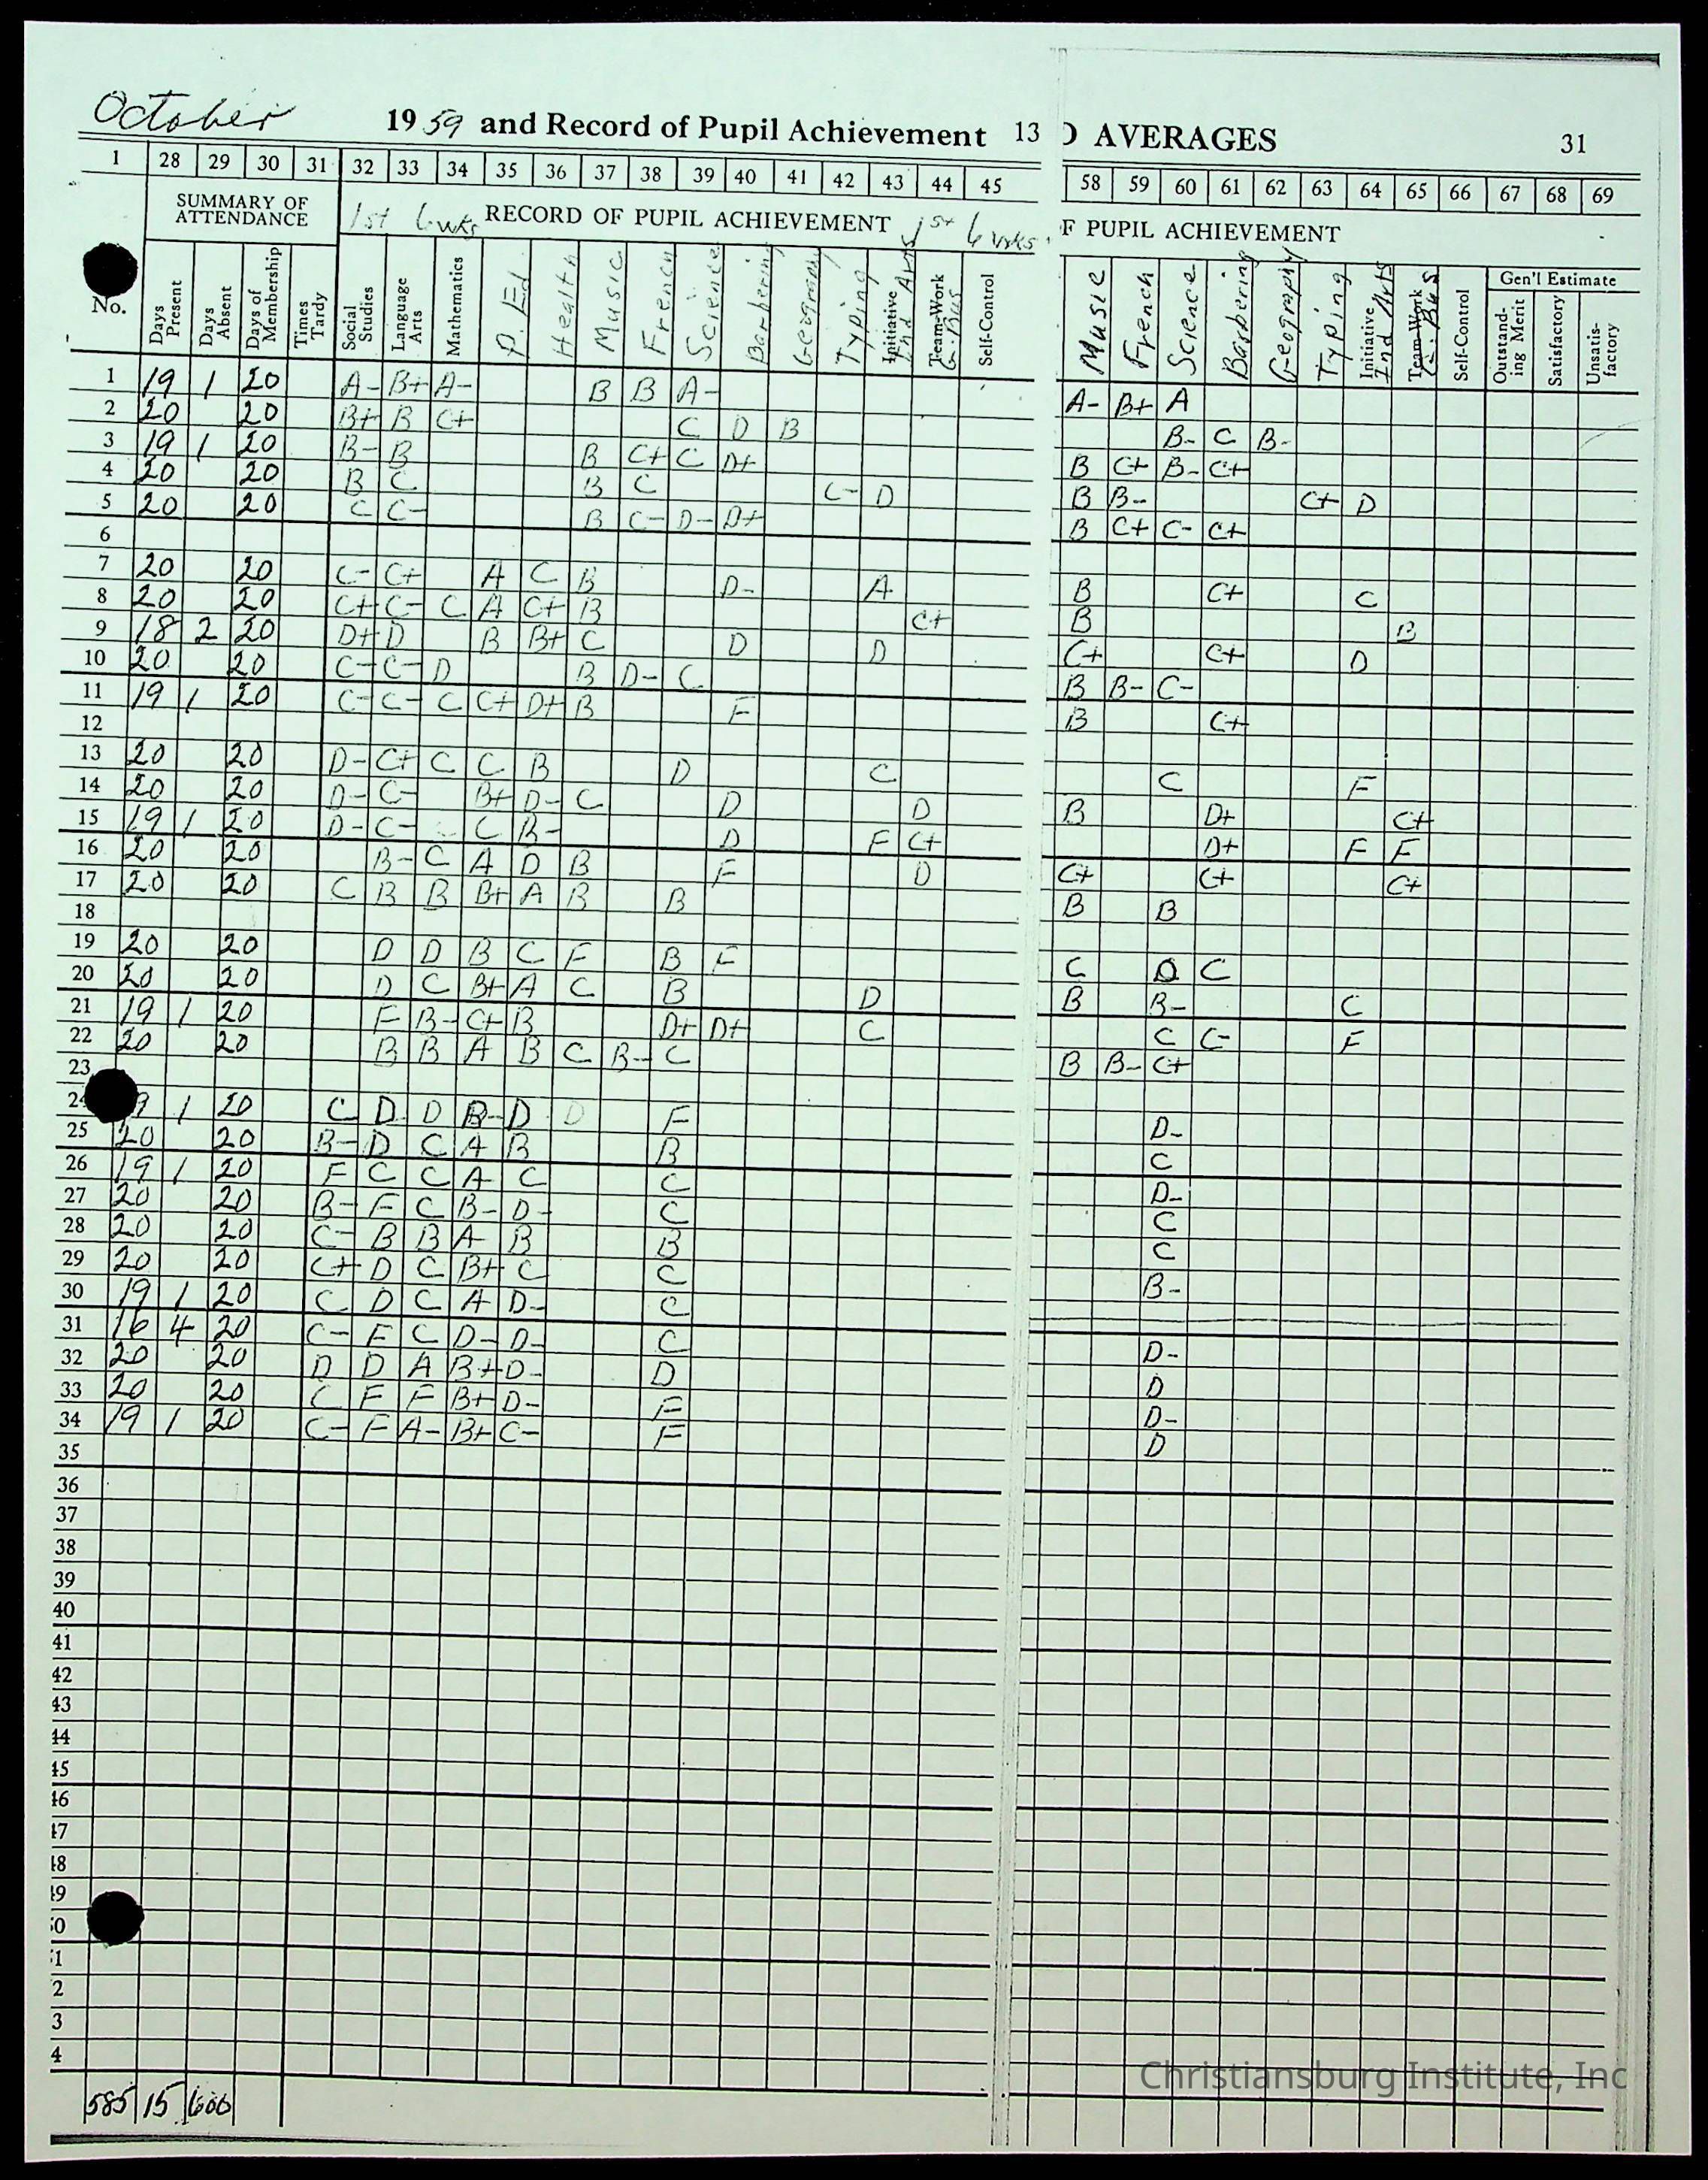 October 1959 and Record of Pupil Achievement 13 AVERAGES 31
1 28 29 30 31 32 33 34 35 36 37 38 39 40 41 42 43 44 45 58 59 60 61 62 63 64 65 66 67 68 69
SUMMARY OF ATTENDANCE 1st 6 wks RECORD OF PUPIL ACHIEVEMENT 1st 6 wks. F PUPIL ACHIEVEMENT
Gen'l Estimate
No. Days Present Days Absent Days of Membership Times Tardy Social Studies Language Arts Mathematics P. Ed Health Music French Science Barbering Geography Typing Initiative Ind Arts Team-Work G. Bus Self-Control Music French Science Barbering Geography Typing Initiative Ind Arts Team-Work G. Bus Self-Control Outstanding Merit Satisfactory Unsatisfactory
1 19 1 20 A- B+ A- B B A- A- B+ A
2 20 20 B+ B C+ C D B B- C B-
3 19 1 20 B- B B C+ C D+ B C+ B- C+
4 20 20 B C B C C- D B B- C+ D
5 20 20 C C- B C- D- D+ B C+ C- C+
6
7 20 20 C- C+ A C B D- A B C+ C
8 20 20 C+ C- C A C+ B C+ B B
9 18 2 20 D+ D B B+ C D D C+ C+ D
10 20 20 C- C- D B D- C B B- C-
11 19 1 20 C- C- C C+ D+ B F B C+
12
13 20 20 D- C+ C C B D C C F
14 20 20 D- C- B+ D- C D D B D+ C+
15 19 1 20 D- C- C B- D F C+ D+ F F
16 20 20 B- C A D B F D C+ C+ C+
17 20 20 C B B B+ A B B B B
18
19 20 20 D D B C F B F C D C
20 20 20 D C B+ A C B D B B- C
21 19 1 20 F B- C+ B D+ D+ C C C- F
22 20 20 B B A B C B- C B B- C+
23
24 9 1 20 C D D B- D D F D-
25 20 20 B- D C A B B C
26 19 1 20 F C C A C C D-
27 20 20 B- F C B- D- C C
28 20 20 C- B B A B B C
29 20 20 C+ D C B+ C C B-
30 19 1 20 C D C A D- C
31 16 4 20 C- F C D- D- C D-
32 20 20 D D A B+ D- D D
33 20 20 C F F B+ D- F D-
34 19 1 20 C- F A- B+ C- F D
35
36
37
38
39
40
41
42
43
44
45
46
47
48
49
50
51
2
3
4
585 15 600
Christiansburg Institute, Inc